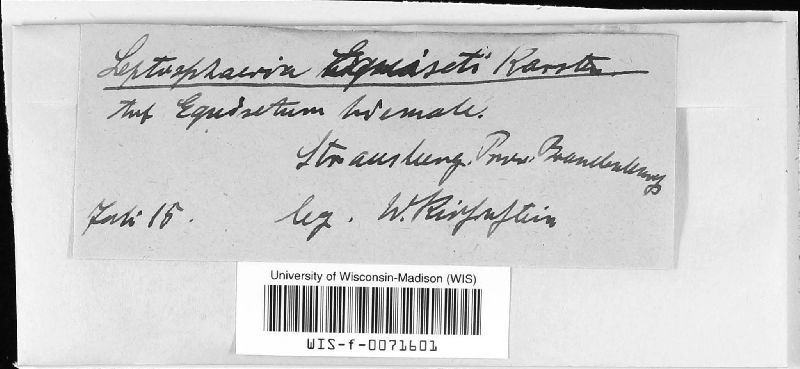 Leptosphaeria Equiseti Karsten.
Auf Equisetum hiemale.
Strausberg. Prov. Brandenburg
Juli 15. leg. W. Kirschstein
University of Wisconsin-Madison (WIS)
WIS-f-0071601